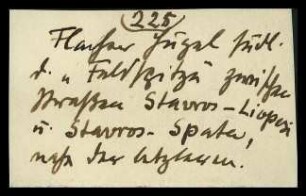 225
Flacher Hügel südl.
d. „ Feldspitze zwischen
Strassen Stavros - Liopesi
u. Stavros - Spata,
nahe der letzteren.